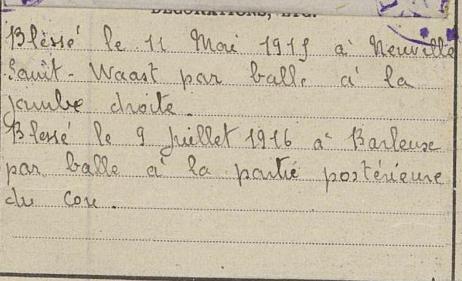 DÉCORATIONS, ETC.
Blessé le 11 Mai 1915 à Neuville
Saint-Waast par balle à la
jambe droite.
Blessé le 9 juillet 1916 à Barleux
par balle à la partie postérieure
du cou.